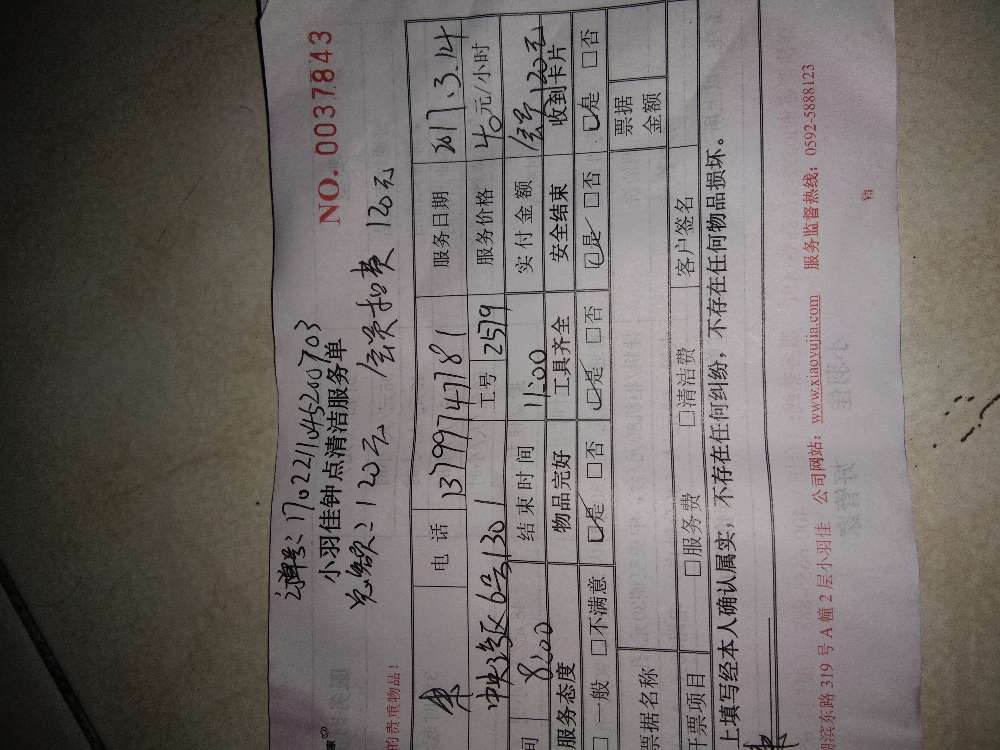 NO. 0037843
订单号：1702211045200703
小羽佳钟点清洁服务单
总额：120元 会员扣费 120元
的贵重物品！
电话 13799747181 服务日期 2017.3.14
中央湾区6号1301 工号 2579 服务价格 40元/小时
间 8:00 结束时间 11:00 实付金额 会员120元
服务态度 物品完好 工具齐全 安全结束 收到卡片
□一般 □不满意 □是 □否 □是 □否 □是 □否 □是 □否
票据名称 票据金额
开票项目 □服务费 □清洁费 客户签名
上填写经本人确认属实，不存在任何纠纷，不存在任何物品损坏。
湖滨东路 319 号 A 幢 2 层小羽佳 公司网站：www.xiaoyujia.com 服务监督热线：0592-5888123